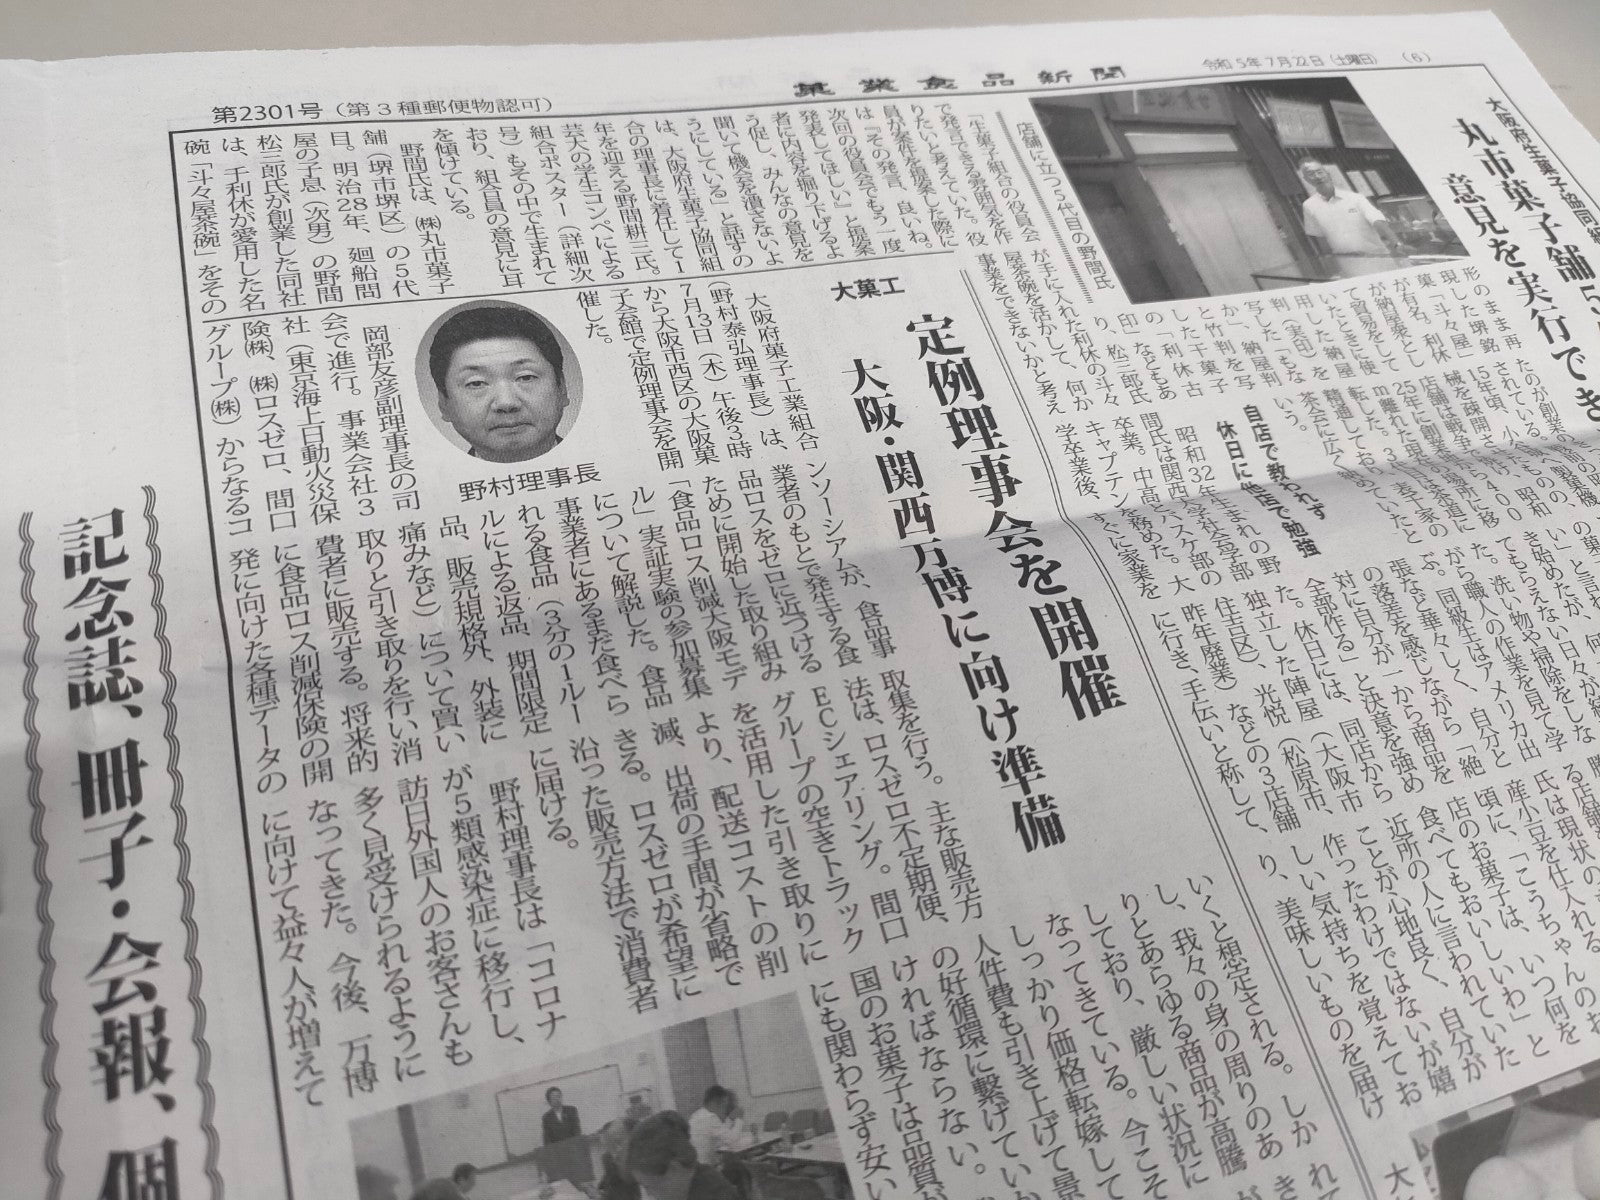 第2301号（第３種郵便物認可）
菓業食品新聞
令和5年7月22日（土曜日）
（6）
大阪府生菓子協同組
丸市菓子舗5
意見を実行でき
店舗に立つ5代目の野間氏
「生菓子組合の役員会
で発言できる雰囲気を作
りたいと考えていた。役
員が案件を提案した際に
は『その発言、良いね。
次回の役員会でもう一度
発表してほしい』と提案
者に内容を掘り下げるよ
う促し、みんなの意見を
聞いて機会を潰さないよ
うにしている」と話すの
は、大阪府生菓子協同組
合の理事長に着任して1
年を迎える野間耕三氏。
芸大の学生コンペによる
組合ポスター（詳細次
号）もその中で生まれて
おり、組合員の意見に耳
を傾けている。
野間氏は、㈱丸市菓子
舗（堺市堺区）の5代
目。明治28年、廻船問
屋の子息（次男）の野間
松三郎氏が創業した同社
は、千利休が愛用した名
碗「斗々屋茶碗」をその
形のまま再
現した堺銘
菓「斗々屋」
が有名。利休
が納屋衆とし
て貿易をして
いたときに使
用した納屋
判（実印）を
写した「もな
か」、納屋判
と竹判を写
した干菓子
の「利休古
印」などもあ
り、松三郎氏
が手に入れた利休の斗々
屋茶碗を活かして、何か
事業をできないかと考え
たのが創業の
されている。
自店で教われず
休日に他店で勉強
昭和32年生まれの野
間氏は関西大学社会学部
卒業。中高とバスケ部の
キャプテンを務めた。大
学卒業後、すぐに家業を
大菓工
定例理事会を開催
大阪・関西万博に向け準備
大阪府菓子工業組合
（野村泰弘理事長）は、
7月13日（木）午後3時
から大阪市西区の大阪菓
子会館で定例理事会を開
催した。
野村理事長
岡部友彦副理事長の司
会で進行。事業会社3
社（東京海上日動火災保
険㈱、㈱ロスゼロ、間口
グループ㈱）からなるコ
ンソーシアムが、食品事
業者のもとで発生する食
品ロスをゼロに近づける
ために開始した取り組み
「食品ロス削減大阪モデ
ル」実証実験の参加募集
について解説した。食品
事業者にあるまだ食べら
れる食品（3分の1ルー
ルによる返品、期間限定
品、販売規格外、外装に
痛みなど）について買い
取りと引き取りを行い消
費者に販売する。将来的
に食品ロス削減保険の開
発に向けた各種データの
取集を行う。主な販売方
法は、ロスゼロ不定期便、
ECシェアリング。間口
グループの空きトラック
を活用した引き取りに
より、配送コストの削
減、出荷の手間が省略で
きる。ロスゼロが希望に
沿った販売方法で消費者
に届ける。
野村理事長は「コロナ
が5類感染症に移行し、
訪日外国人のお客さんも
多く見受けられるように
なってきた。今後、万博
に向けて益々人が増えて
いくと想定される。しか
し、我々の身の周りのあ
りとあらゆる商品が高騰
しており、厳しい状況に
なってきている。今こそ
しっかり価格転嫁して
人件費も引き上げて景
の好循環に繋げていか
ければならない。
国のお菓子は品質が
にも関わらず安い
い」と言われ、何
き始めたが、何
てもらえない日々が続
た。洗い物や掃除をしな
がら職人の作業を見て学
ぶ。同級生はアメリカ出
張など華々しく、自分と
の落差を感じながら「絶
対に自分が一から商品を
全部作る」と決意を強め
た。休日には、同店から
独立した陣屋（大阪市
住吉区）、光悦（松原市、
昨年廃業）などの3店舗
に行き、手伝いと称して、
氏は現状の
産小豆を仕入れる
頃に、「こうちゃんのお
店のお菓子は、いつ何を
食べてもおいしいわ」と
近所の人に言われていた
ことが心地良く、自分が
作ったわけではないが嬉
しい気持ちを覚えてお
り、美味しいものを届け
記念誌、冊子・会報、個